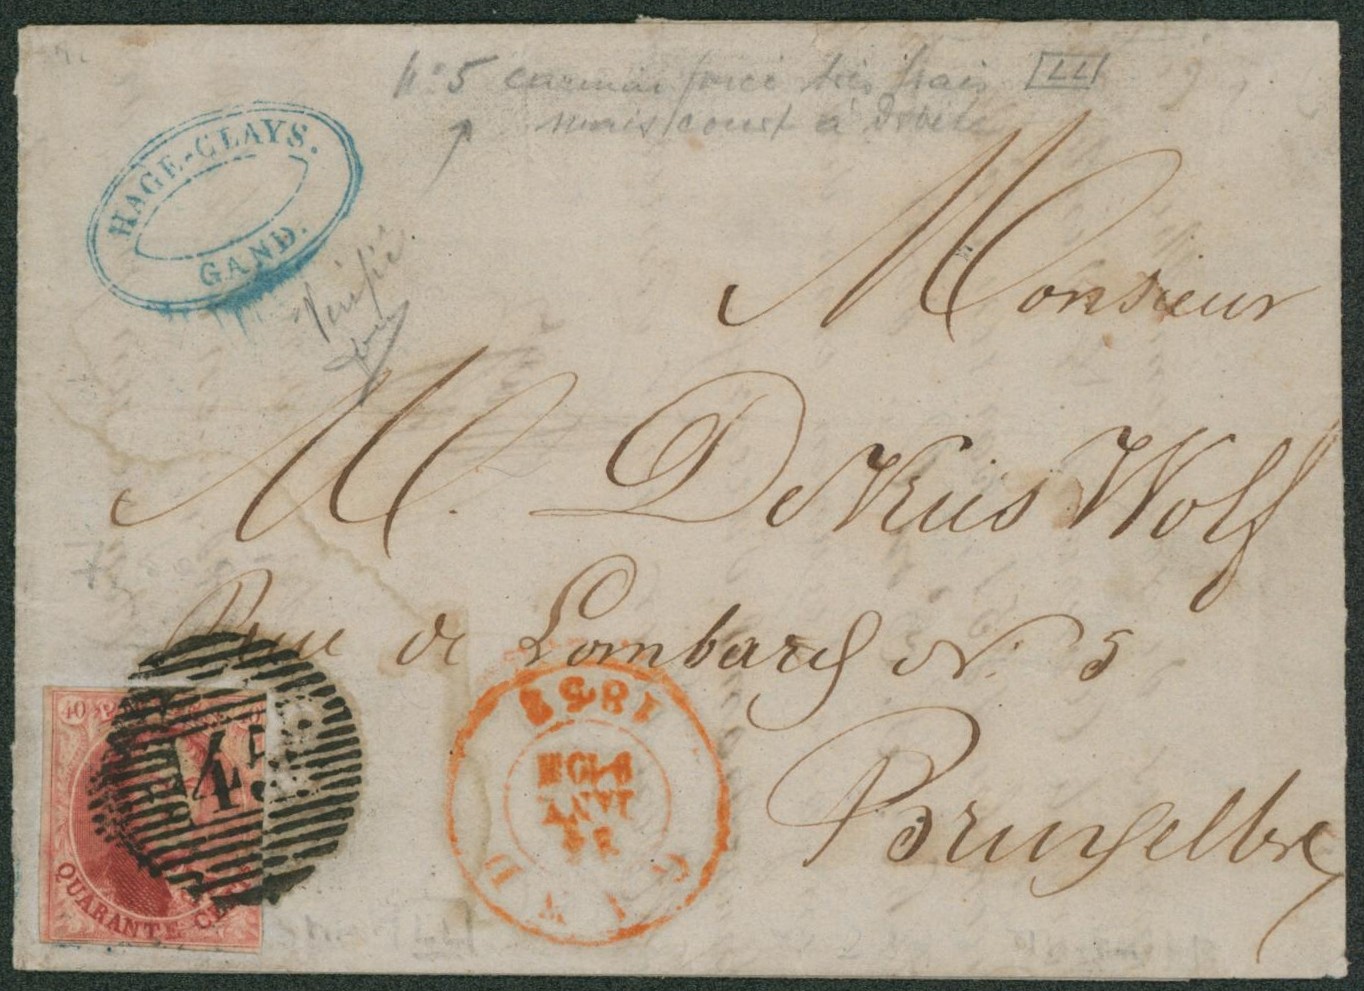 N° 5 carmin foncé très frais LL
mais court à droite
HAGE-CLAYS.
GAND.
Vérifié
Monsieur
M. De Wolf
Rue de Lombard N. 5
Bruxelles
45
40
QUARANTE CE
GAND
24
JANV
1852